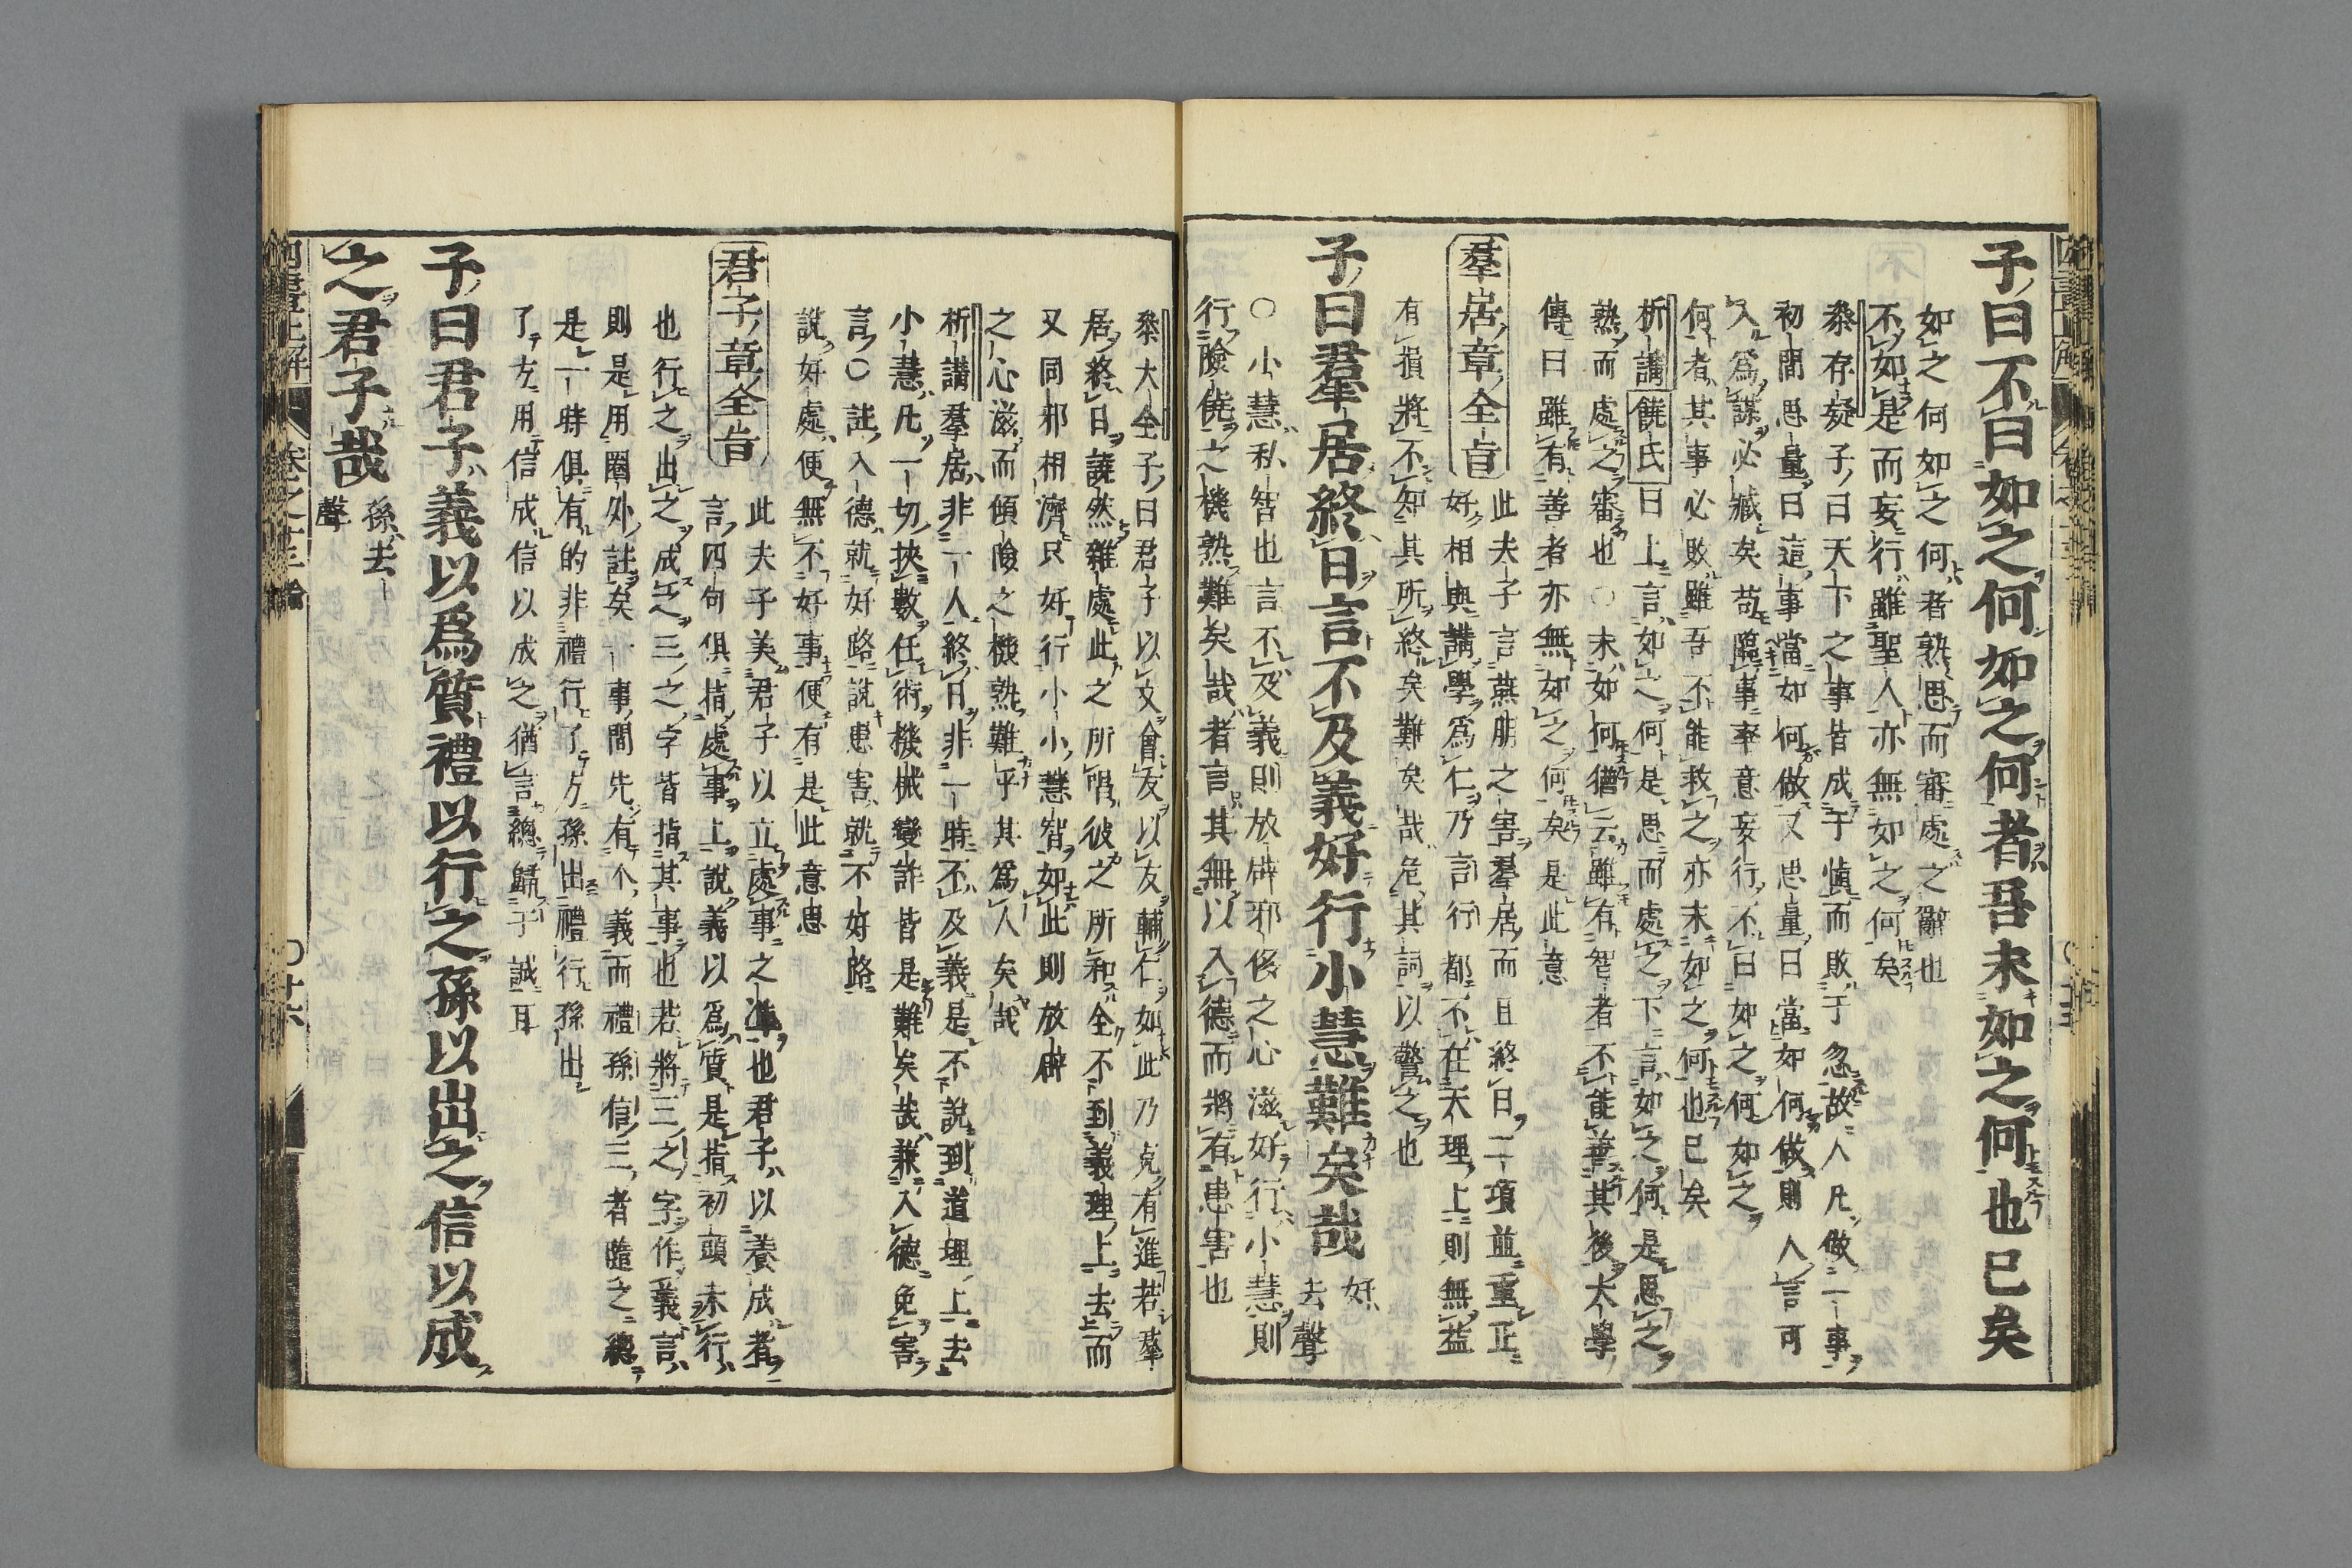 子曰不曰如之何如之何者吾未如之何也已矣
如之何如之何者熟思而審處之辭也
不如是而妄行雖聖人亦無如之何矣
叅存疑子曰天下之事皆成于慎而敗于忽故人凡做一事
初間思量曰這事當如何做又思量曰當如何做則人言可
入爲謀必臧矣苟臨事率意妄行不曰如之何如之
何者其事必敗雖吾不能救之亦末如之何也已矣
析講饒氏曰上言如之何是思而處之下言如之何是思之
熟而處之審也○末如何猶云雖有智者不能善其後大學
傳曰雖有善者亦無如之何矣是此意
羣居章全旨
此夫子言燕朋之害羣居而且終日二項並重正
好相與講學爲仁乃言行都不在天理上則無益
有損將不知其所終矣難矣哉危其詞以警之也
子曰羣居終日言不及義好行小慧難矣哉
好
去聲
○小慧私智也言不及義則放辟邪侈之心滋好行小慧則
行險僥之機熟難矣哉者言其無以入德而將有患害也
叅大全子曰君子以文會友以友輔仁如此乃克有進若羣
居終日譊然雜處此之所唱彼之所和全不到義理上去而
又同邪相濟只好行小小慧智如此則放辟
之心滋而傾險之機熟難乎其爲人矣哉
析講羣居非一人終日非一時不及義是不說到道理上去
小慧凡一切挾數任術機械變詐皆是難矣哉兼入德免害
言○註入德就好路說患害就不好路
說好處便無不好事便有是此意思
君子章全旨
此夫子美君子以立處事之準也君子以養成者
言四句俱指處事上說義以爲質是指初頭未行
也行之出之成之三之字皆指其事也若將三之字作義言
則是用圈外註矣一事間先有个義而禮孫信三者隨之總
是一時俱有的非禮行了方孫出禮行孫出
了方用信成信以成之猶言總歸于誠耳
子曰君子義以爲質禮以行之孫以出之信以成
之君子哉
孫去
聲